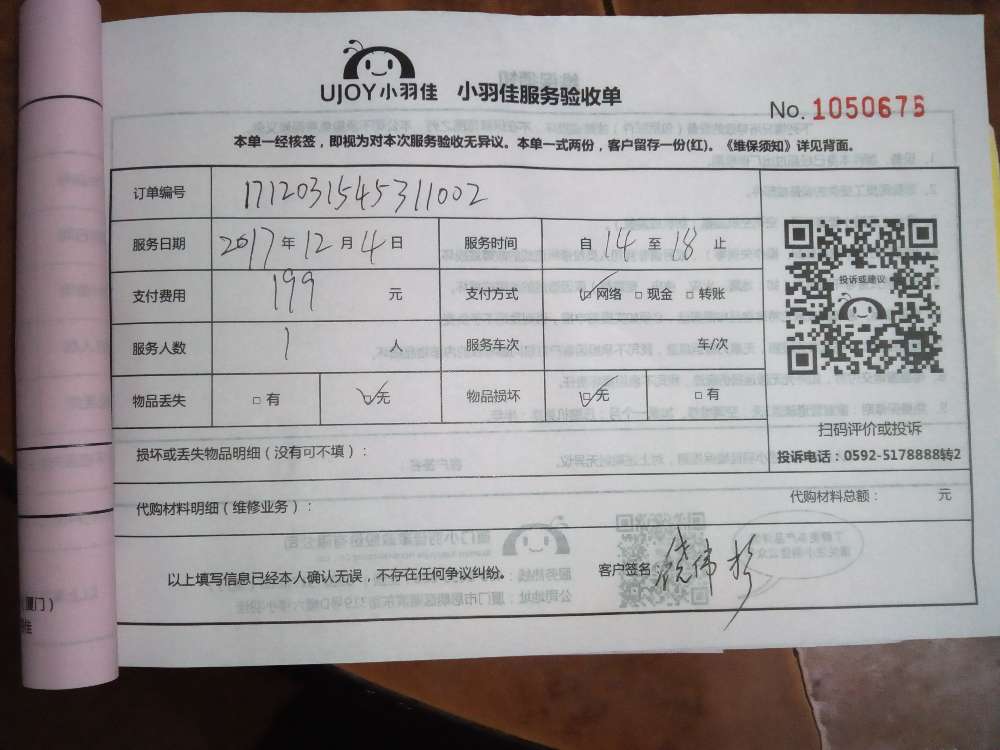 UJOY小羽佳 小羽佳服务验收单
No. 1050675
本单一经核签，即视为对本次服务验收无异议。本单一式两份，客户留存一份(红)。《维保须知》详见背面。
订单编号 1712031545311002
服务日期 2017年12月4日 服务时间 自14至18止
支付费用 199 元 支付方式 ☑网络 □现金 □转账
服务人数 1 人 服务车次 车/次
物品丢失 □有 ☑无 物品损坏 ☑无 □有
投诉或建议
扫码评价或投诉
投诉电话：0592-5178888转2
损坏或丢失物品明细（没有可不填）：
代购材料明细（维修业务）： 代购材料总额： 元
以上填写信息已经本人确认无误，不存在任何争议纠纷。 客户签名：
厦门）